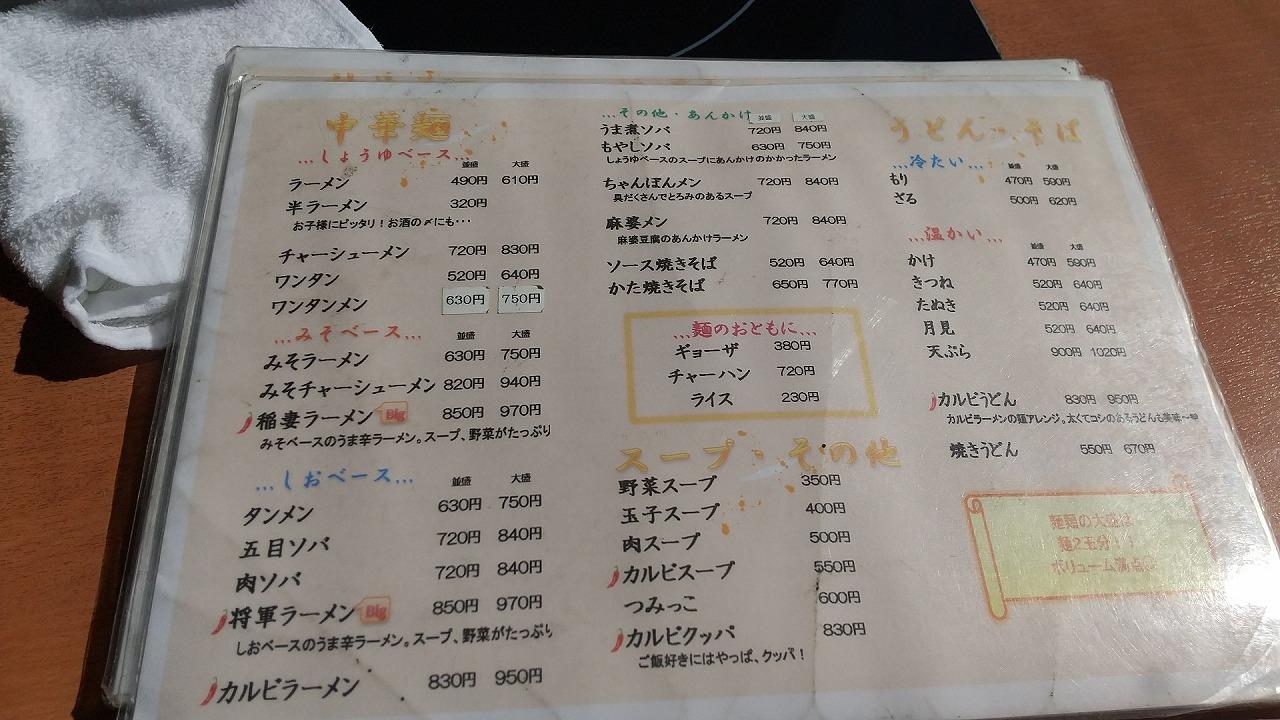 中華麺
...しょうゆベース...
並盛 大盛
ラーメン 490円 610円
半ラーメン 320円
お子様にピッタリ！お酒の〆にも・・・
チャーシューメン 720円 830円
ワンタン 520円 640円
ワンタンメン 630円 750円
...みそベース... 並盛 大盛
みそラーメン 630円 750円
みそチャーシューメン 820円 940円
稲妻ラーメン Big 850円 970円
みそベースのうま辛ラーメン。スープ、野菜がたっぷり
...しおベース... 並盛 大盛
タンメン 630円 750円
五目ソバ 720円 840円
肉ソバ 720円 840円
将軍ラーメン Big 850円 970円
しおベースのうま辛ラーメン。スープ、野菜がたっぷり
カルビラーメン 830円 950円
...その他・あんかけ 並盛 大盛
うま煮ソバ 720円 840円
もやしソバ 630円 750円
しょうゆベースのスープにあんかけのかかったラーメン
ちゃんぽんメン 720円 840円
具だくさんでとろみのあるスープ
麻婆メン 720円 840円
麻婆豆腐のあんかけラーメン
ソース焼きそば 520円 640円
かた焼きそば 650円 770円
...麺のおともに...
ギョーザ 380円
チャーハン 720円
ライス 230円
スープ・その他
野菜スープ 350円
玉子スープ 400円
肉スープ 500円
カルビスープ 550円
つみっこ 600円
カルビクッパ 830円
ご飯好きにはやっぱ、クッパ！
うどん・そば
...冷たい... 並盛 大盛
もり 470円 590円
ざる 500円 620円
...温かい...
並盛 大盛
かけ 470円 590円
きつね 520円 640円
たぬき 520円 640円
月見 520円 640円
天ぷら 900円 1020円
カルビうどん 830円 950円
カルビラーメンの麺アレンジ。太くてコシのあるうどんも美味〜
焼きうどん 550円 670円
麺類の大盛は
麺2玉分！！
ボリューム満点